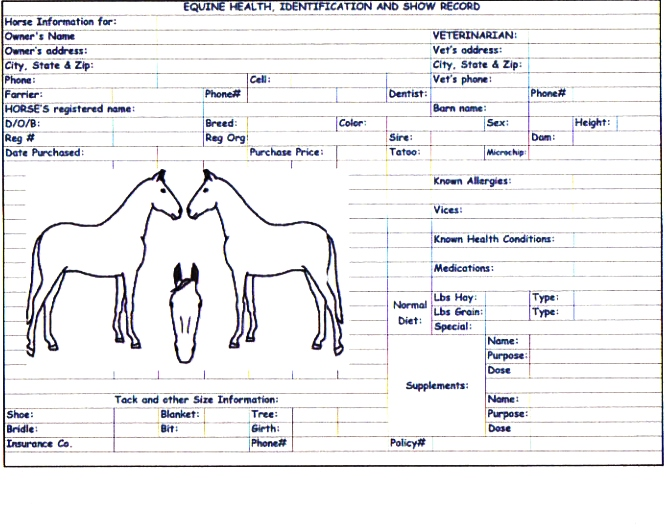 EQUINE HEALTH, IDENTIFICATION AND SHOW RECORD
Horse Information for:
Owner's Name VETERINARIAN:
Owner's address: Vet's address:
City, State & Zip: City, State & Zip:
Phone: Cell: Vet's phone:
Farrier: Phone# Dentist: Phone#
HORSE'S registered name: Barn name:
D/O/B: Breed: Color: Sex: Height:
Reg # Reg Org: Sire: Dam:
Date Purchased: Purchase Price: Tatoo: Microchip:
Known Allergies:
Vices:
Known Health Conditions:
Medications:
Normal Diet: Lbs Hay: Type:
Lbs Grain: Type:
Special:
Supplements: Name:
Purpose:
Dose
Name:
Purpose:
Dose
Tack and other Size Information:
Shoe: Blanket: Tree:
Bridle: Bit: Girth:
Insurance Co. Phone# Policy#